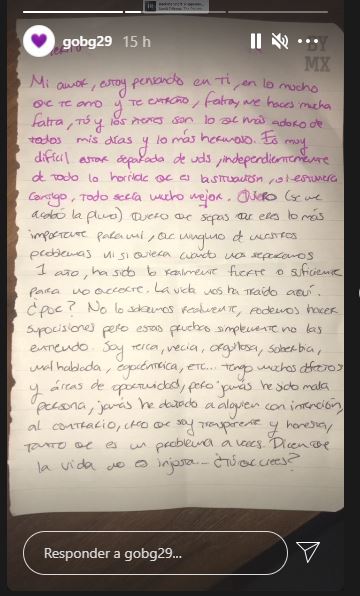 gobg29
15 h
BY
MX
Mi amor, estoy pensando en ti, en lo mucho
que te amo y te extraño, faltas, me haces mucha
falta, tú y los nenes son lo que más adoro de
todos mis días y lo más hermoso. Es muy
difícil estar separada de uds, independientemente
de todo lo horrible que es la situación, si estuviera
contigo, todo sería mucho mejor. Quiero (se me
acabó la pluma) Quiero que sepas que eres lo más
importante para mí, que ninguno de nuestros
problemas ni si quiera cuando nos separamos
1 año, ha sido lo realmente fuerte o suficiente
para no quererte. La vida nos ha traído aquí.
¿por? No lo sabemos realmente, podemos hacer
suposiciones pero estas pruebas simplemente no las
entiendo. Soy terca, necia, orgullosa, soberbia,
mal hablada, egocéntrica, etc... tengo muchos defectos
y áreas de oportunidad, pero jamás he sido mala
persona, jamás he dañado a alguien con intención,
al contrario, creo que soy trasparente y honesta,
tanto que es un problema a veces. Dicen que
la vida no es injusta... ¿Tú que crees?
Responder a gobg29...